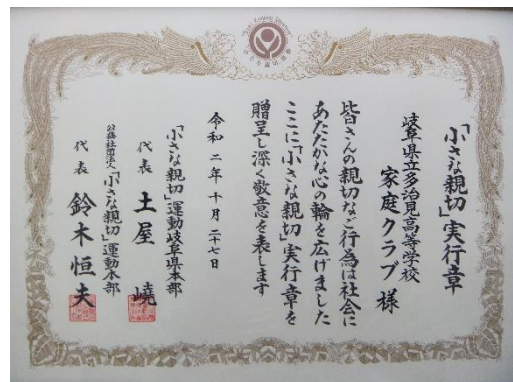 「小さな親切」実行章
岐阜県立多治見高等学校
家庭クラブ 様
皆さんの親切なご行為は社会に
あたたかな心の輪を広げました
ここに「小さな親切」実行章を
贈呈し深く敬意を表します
令和二年十月二十七日
「小さな親切」運動岐阜県本部
代表 土屋 嶢
公益社団法人「小さな親切」運動本部
代表 鈴木恒夫